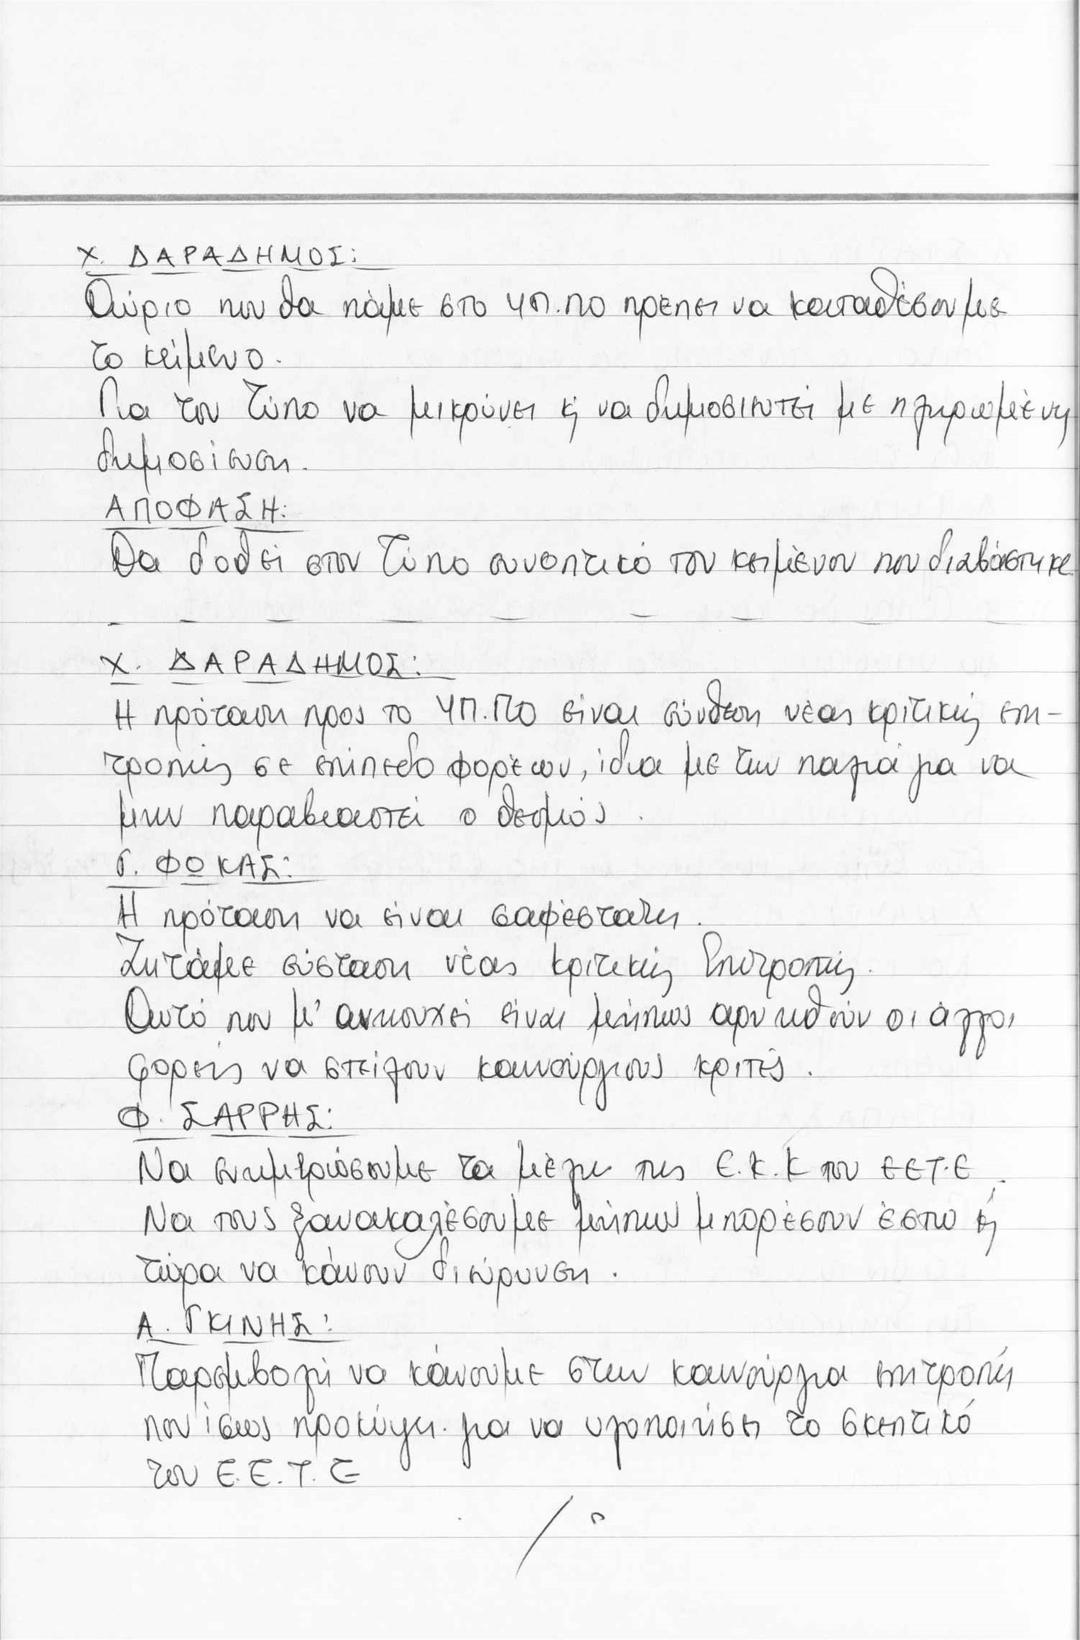 Χ. ΔΑΡΑΔΗΜΟΣ:
Αύριο που θα πάμε στο ΥΠ.ΠΟ πρέπει να καταθέσουμε
το κείμενο.
Για τον Τύπο να μικρύνει ή να δημοσιευτεί με πληρωμένη
δημοσίευση.
ΑΠΟΦΑΣΗ:
Θα δοθεί στον Τύπο συνοπτικό του κειμένου που διαβάστηκε
Χ. ΔΑΡΑΔΗΜΟΣ:
Η πρόταση προς το ΥΠ.ΠΟ είναι σύνθεση νέας κριτικής επι-
τροπής σε επίπεδο φορέων, ίδια με την παλιά για να
μην παραβιαστεί ο θεσμός.
Γ. ΦΩΚΑΣ:
Η πρόταση να είναι σαφέστατη.
Ζητάμε σύσταση νέας κριτικής Επιτροπής.
Αυτό που μ' ανησυχεί είναι μήπως αρνηθούν οι άλλοι
φορείς να στείλουν καινούργιους κριτές.
Φ. ΣΑΡΡΗΣ:
Να ενημερώσουμε τα μέλη της Ε.Κ.Κ του ΕΕΤ.Ε.
Να τους ξανακαλέσουμε μήπως μπορέσουν έστω ή
τώρα να κάνουν διεύρυνση.
Α. ΓΚΙΝΗΣ:
Παρεμβολή να κάνουμε στην καινούργια επιτροπή
που ίσως προκύψει για να υλοποιήσει το σκεπτικό
του Ε.Ε.Τ.Ε